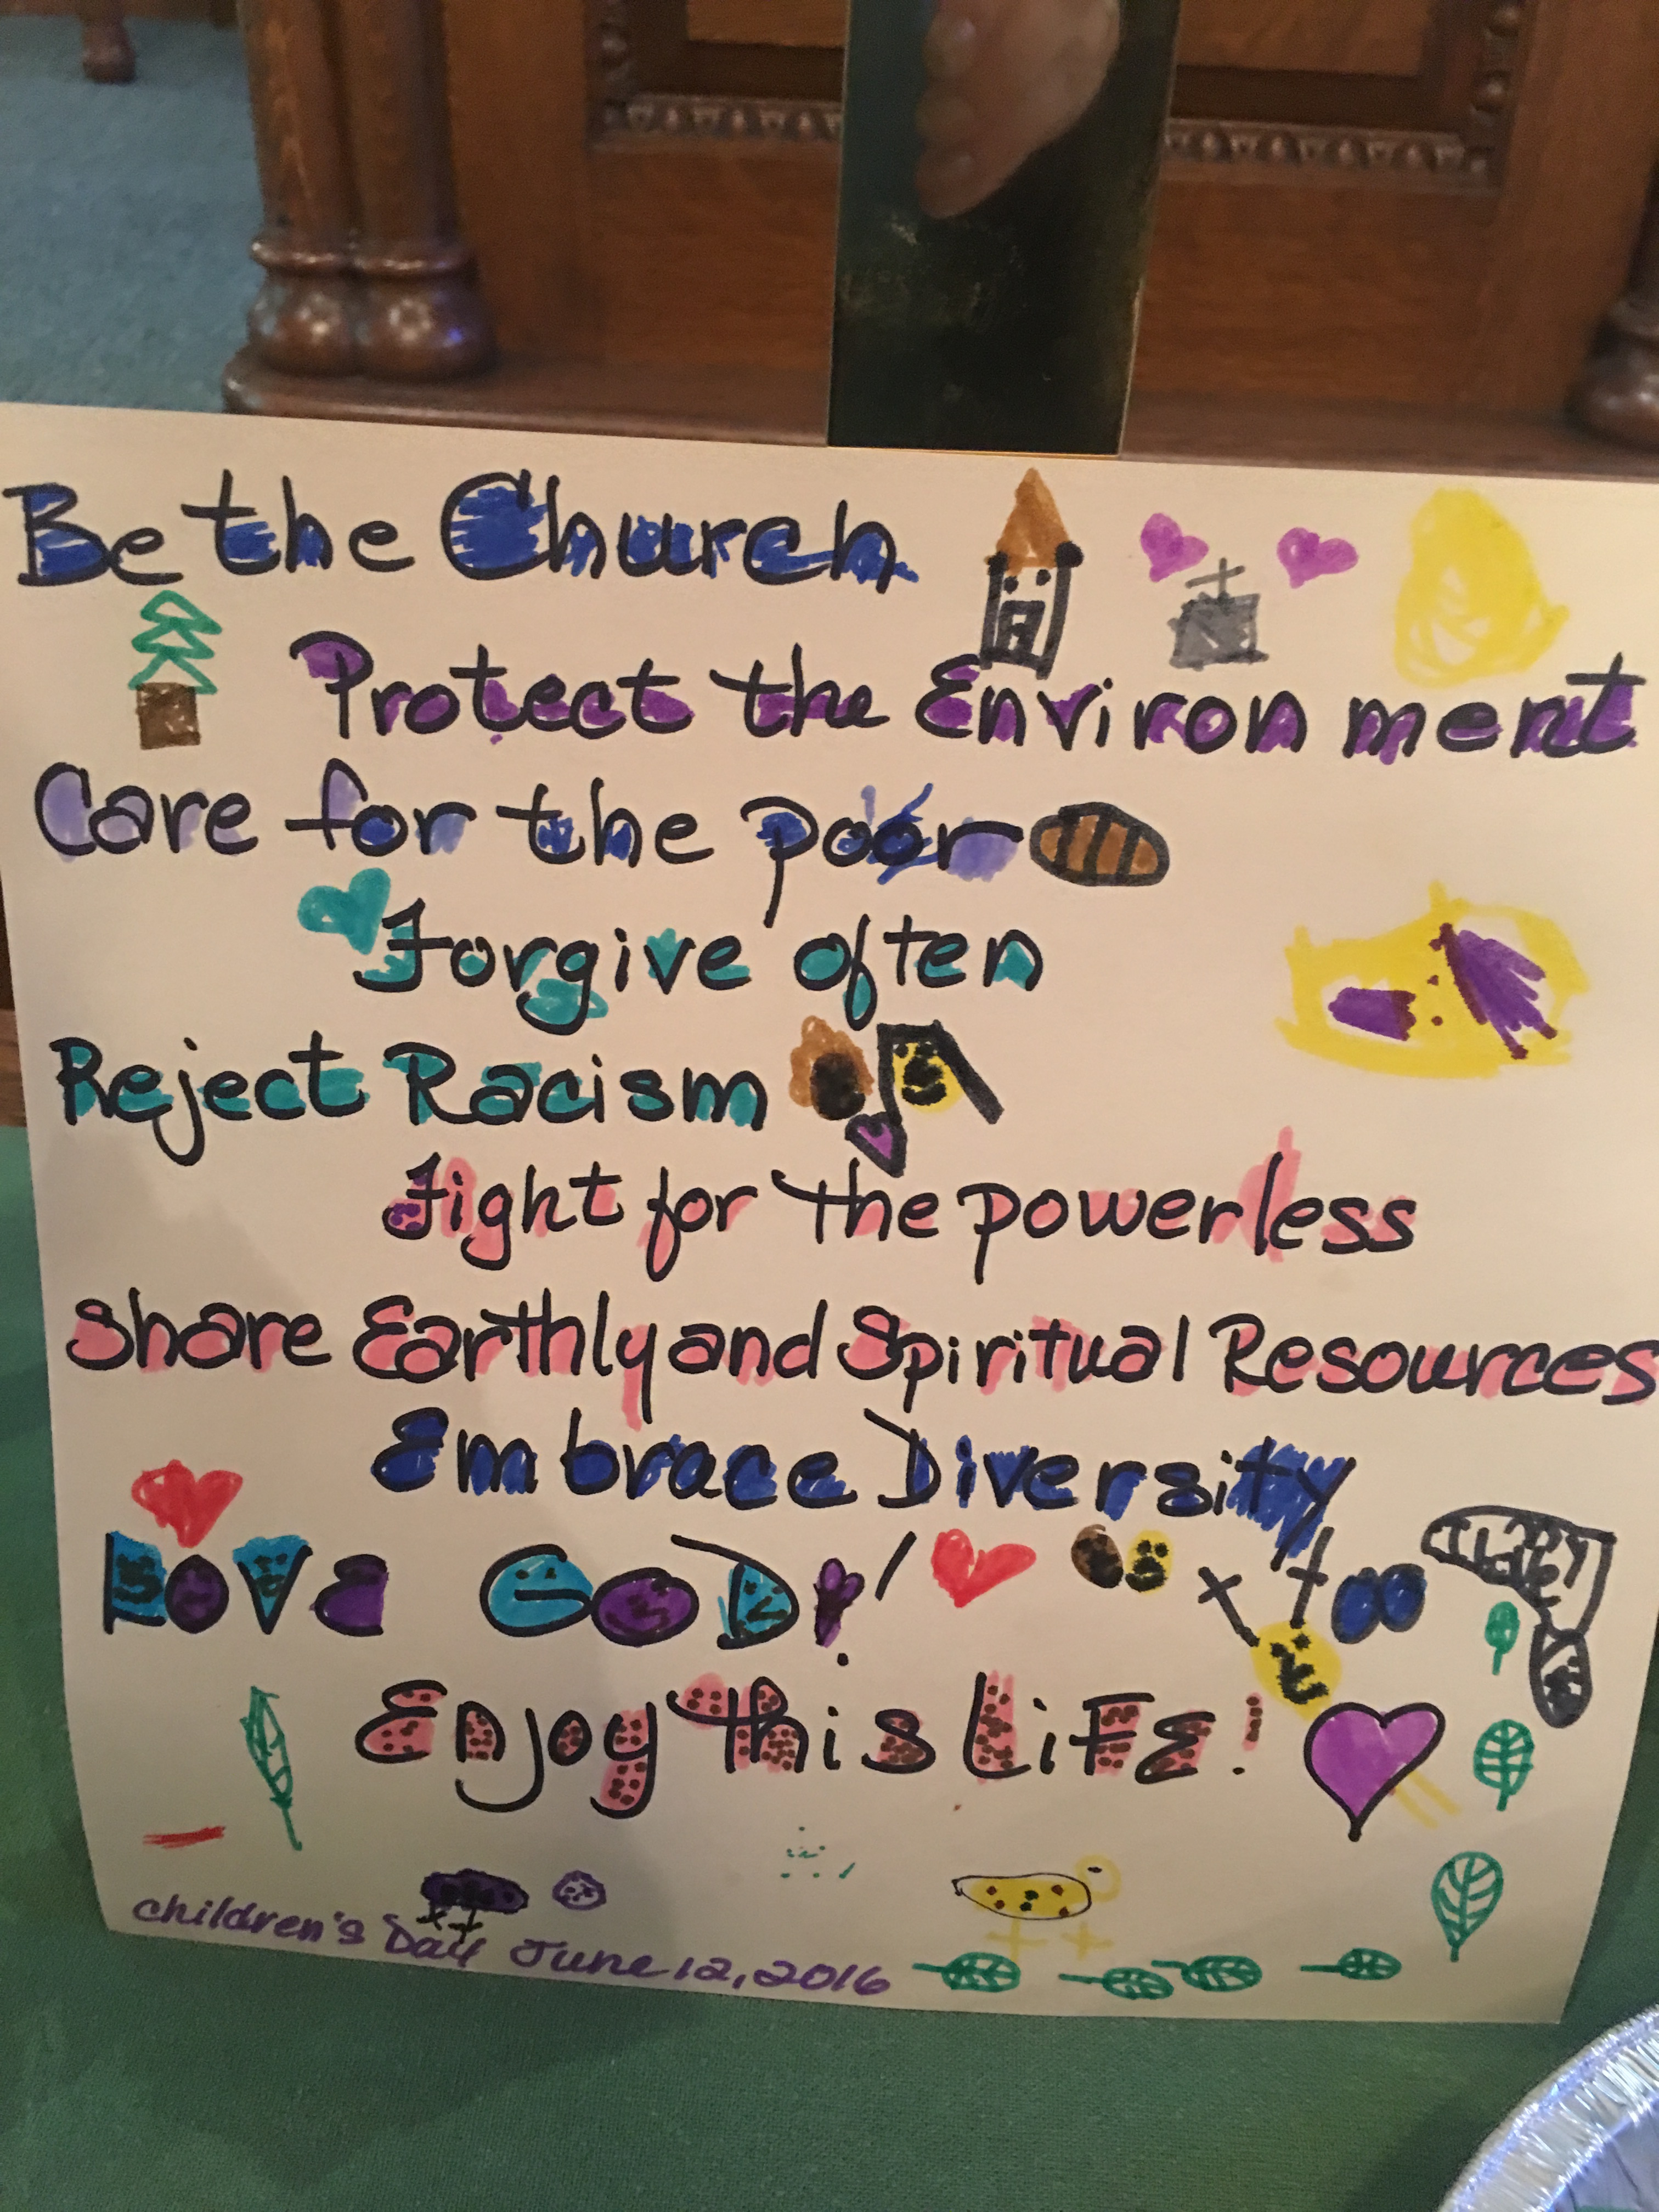 Be the Church
Protect the Environment
Care for the poor
Forgive often
Reject Racism
Fight for the powerless
Share Earthly and Spiritual Resources
Embrace Diversity
LOVE GOD!
Enjoy this LiFE!
children's Day June 12, 2016